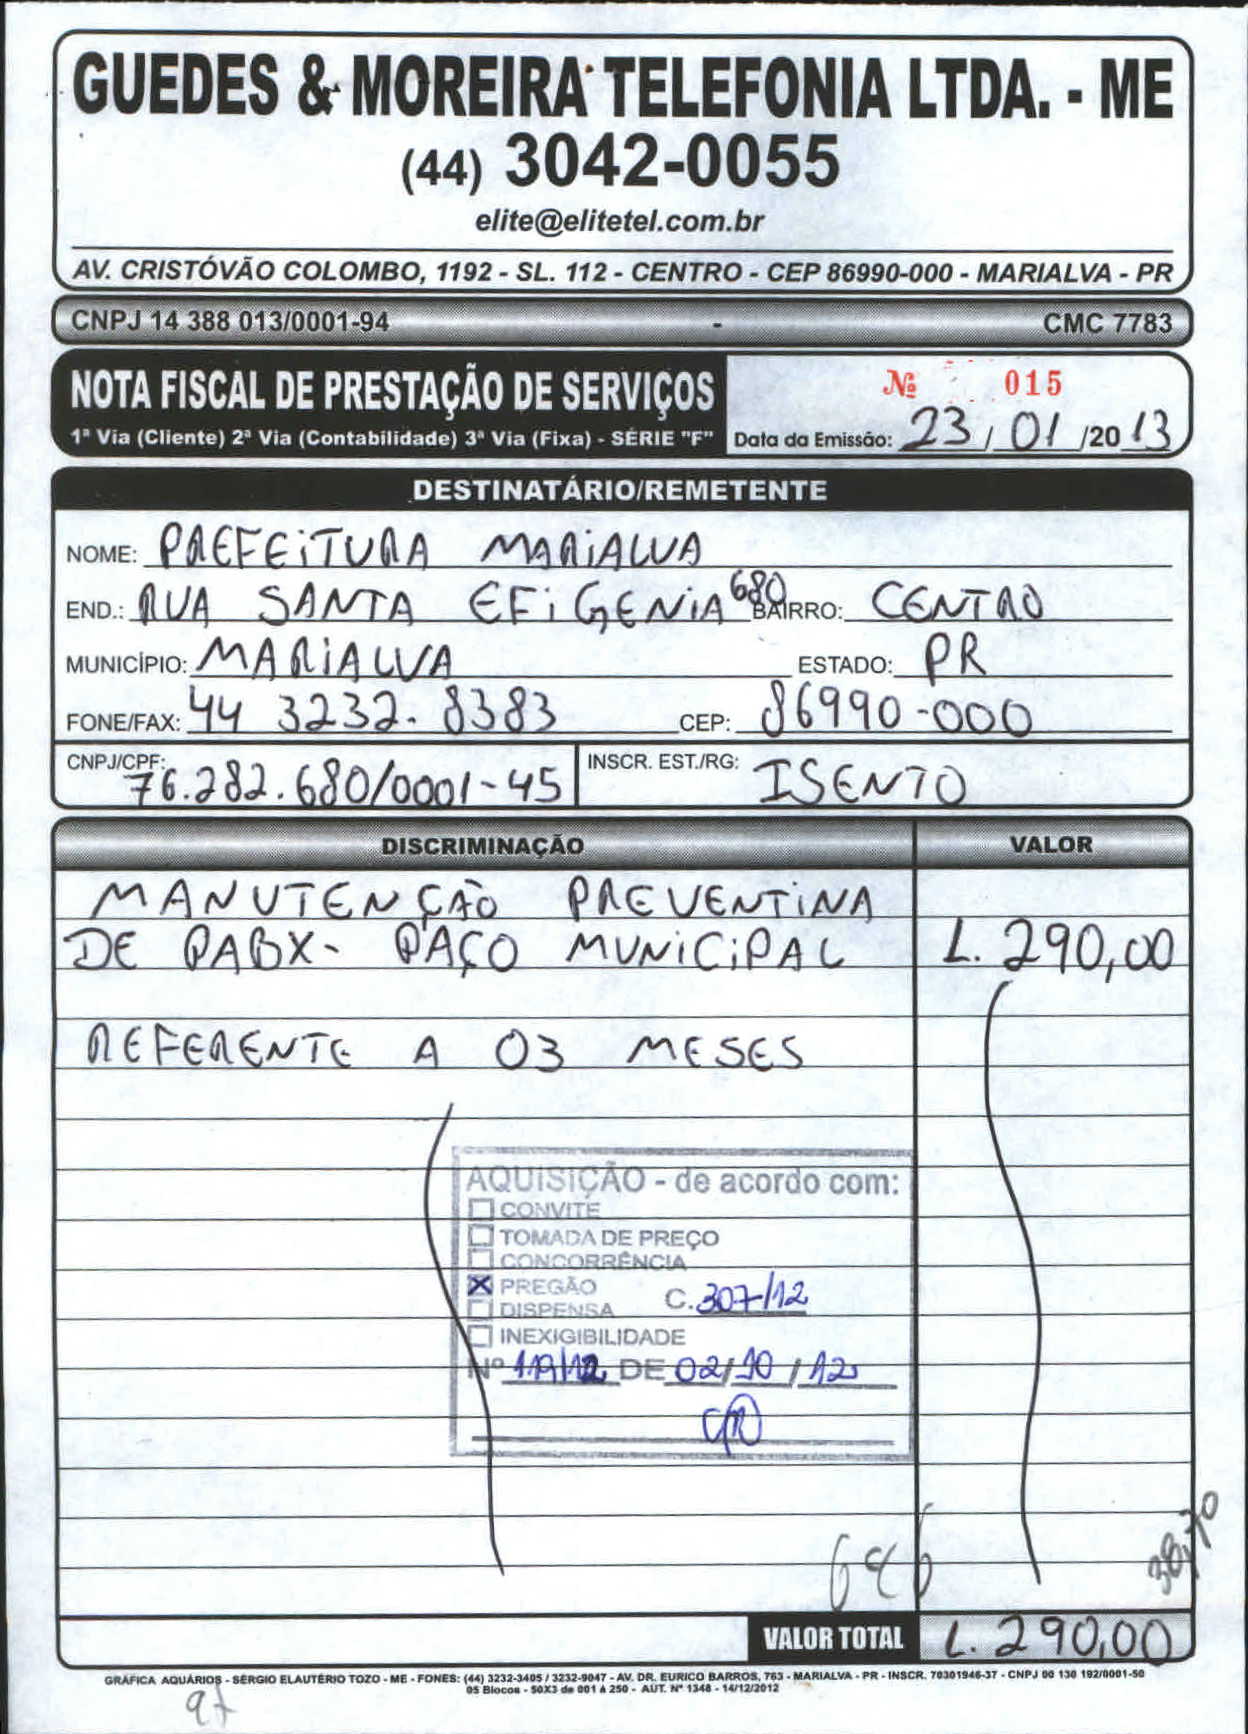 GUEDES & MOREIRA TELEFONIA LTDA. - ME
(44) 3042-0055
elite@elitetel.com.br
AV. CRISTÓVÃO COLOMBO, 1192 - SL. 112 - CENTRO - CEP 86990-000 - MARIALVA - PR
CNPJ 14 388 013/0001-94 - CMC 7783
NOTA FISCAL DE PRESTAÇÃO DE SERVIÇOS
1ª Via (Cliente) 2ª Via (Contabilidade) 3ª Via (Fixa) - SÉRIE "F"
Nº 015
Data da Emissão: 23/01/2013
DESTINATÁRIO/REMETENTE
NOME: PREFEITURA MARIALVA
END.: RUA SANTA EFIGENIA 680 BAIRRO: CENTRO
MUNICÍPIO: MARIALVA ESTADO: PR
FONE/FAX: 44 3232-8383 CEP: 86990-000
CNPJ/CPF: 76.282.680/0001-45 INSCR. EST./RG: ISENTO
DISCRIMINAÇÃO VALOR
MANUTENÇÃO PREVENTINA
DE PABX- PAÇO MUNICIPAL 1.290,00
REFERENTE A 03 MESES
AQUISIÇÃO - de acordo com:
CONVITE
TOMADA DE PREÇO
CONCORRÊNCIA
X PREGÃO C.307/12
DISPENSA
INEXIGIBILIDADE
Nº 119/12 DE 02/10/12
646
38,70
VALOR TOTAL 1.290,00
GRÁFICA AQUÁRIOS - SÉRGIO ELAUTÉRIO TOZO - ME - FONES: (44) 3232-3405 / 3232-9047 - AV. DR. EURICO BARROS, 763 - MARIALVA - PR - INSCR. 70301946-37 - CNPJ 00 130 192/0001-50
05 Blocos - 50X3 de 001 à 250 - AUT. Nº 1348 - 14/12/2012
97